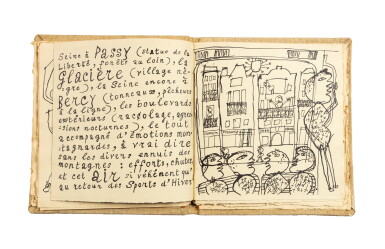 Seine à PASSY (statue de la
Liberté, forêts au loin), la
GLACIÈRE (village nè-
gre), la Seine encore à
BERCY (tonneaux, pêcheurs
à la ligne), les boulevards
extérieurs (racolage, agres-
sions nocturnes), le tout
accompagné d'émotions mon-
tagnardes, à vrai dire
sans les divers ennuis des
montagnes : efforts, chutes,
et cet air si véhément qu'
au retour des Sports d'Hiver